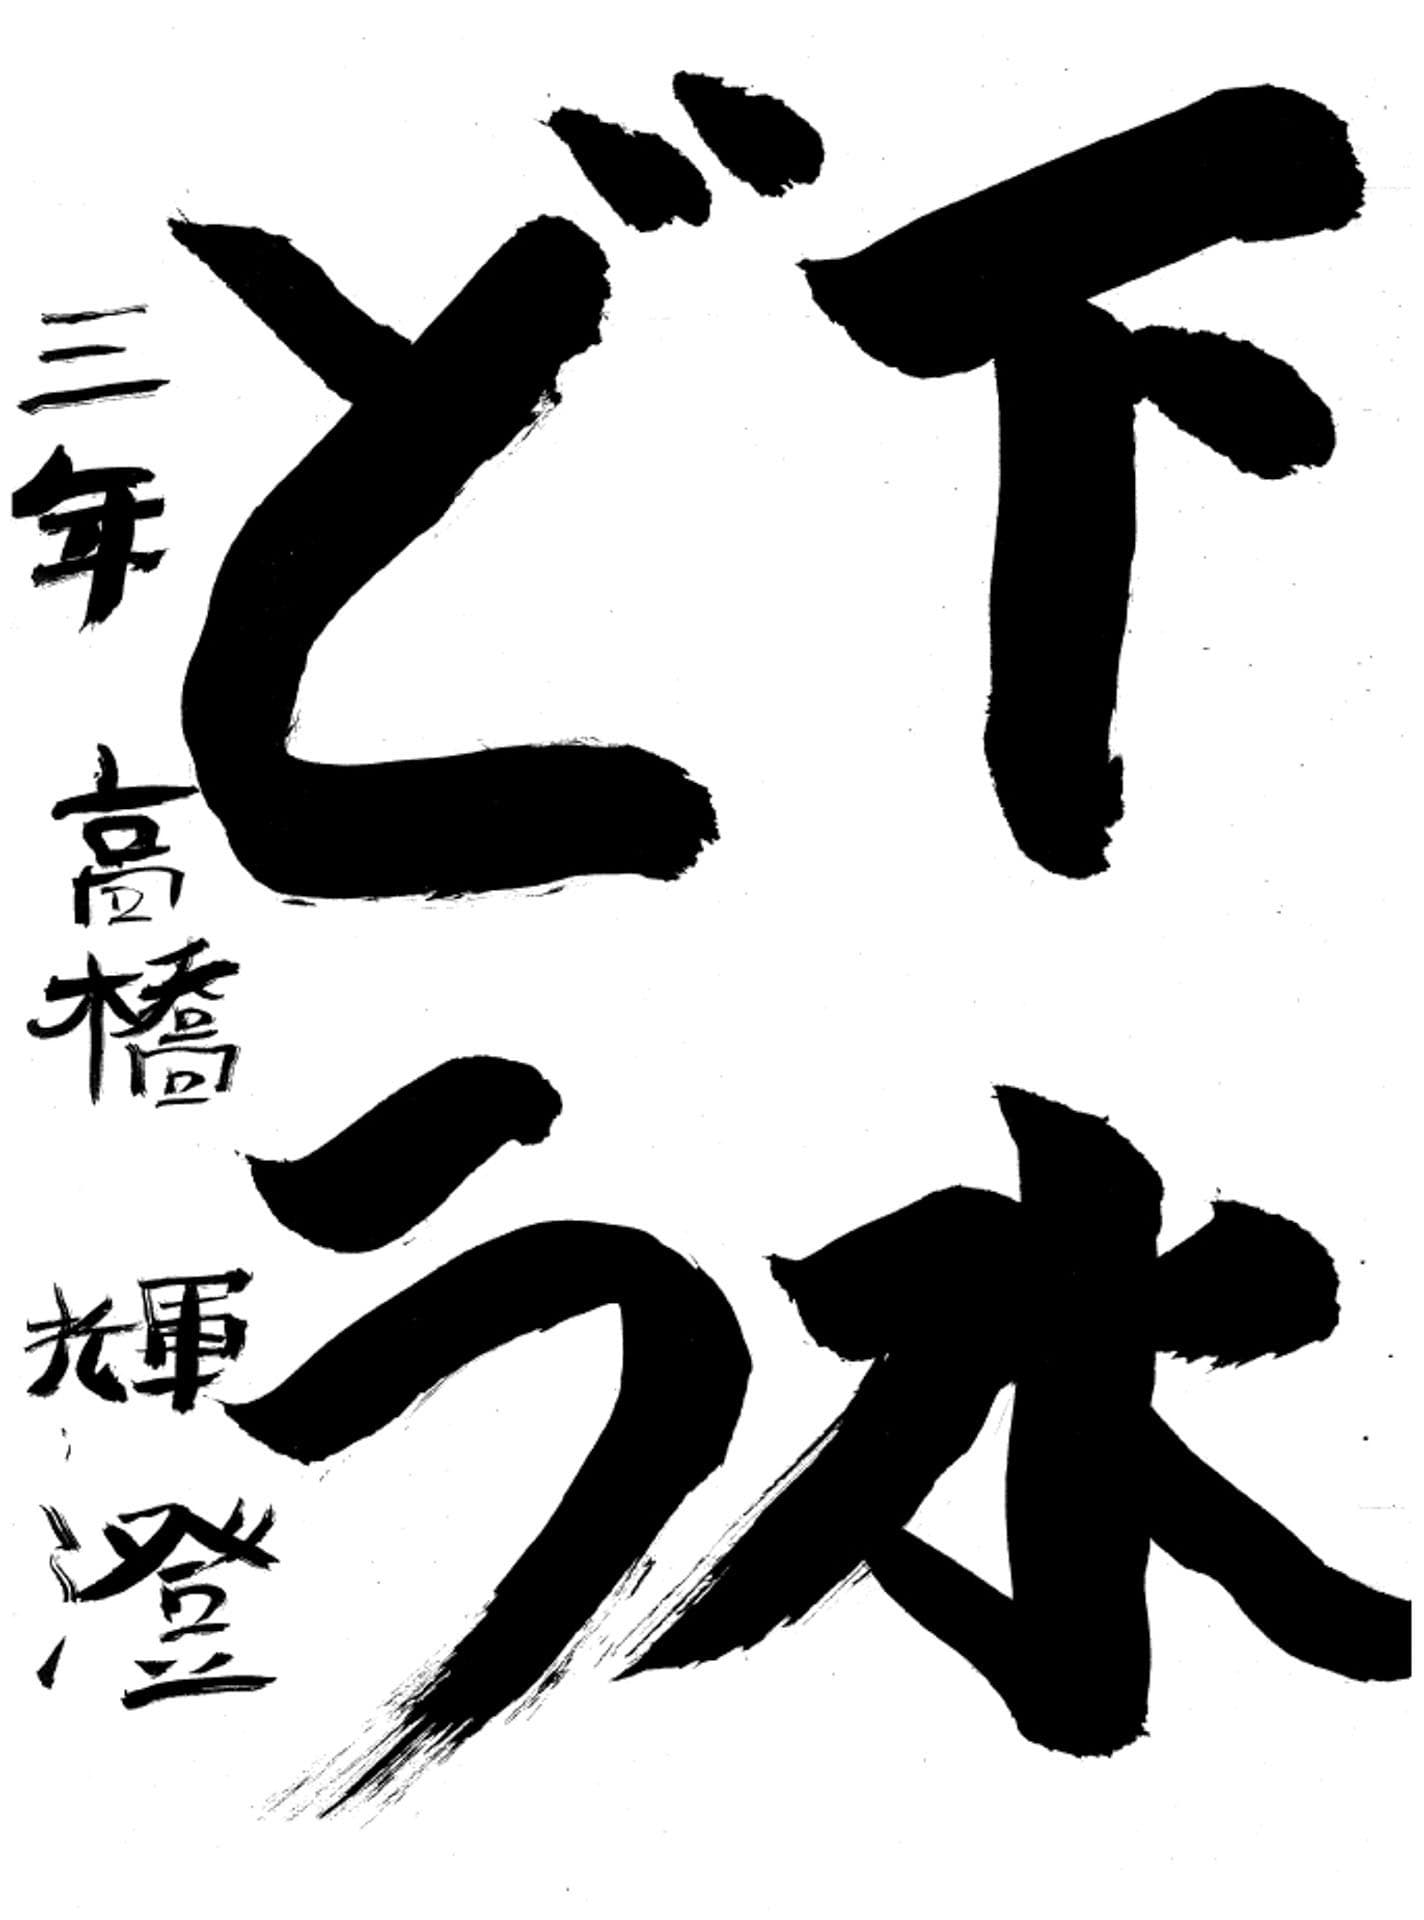 下水
どう
三年 高橋 輝澄